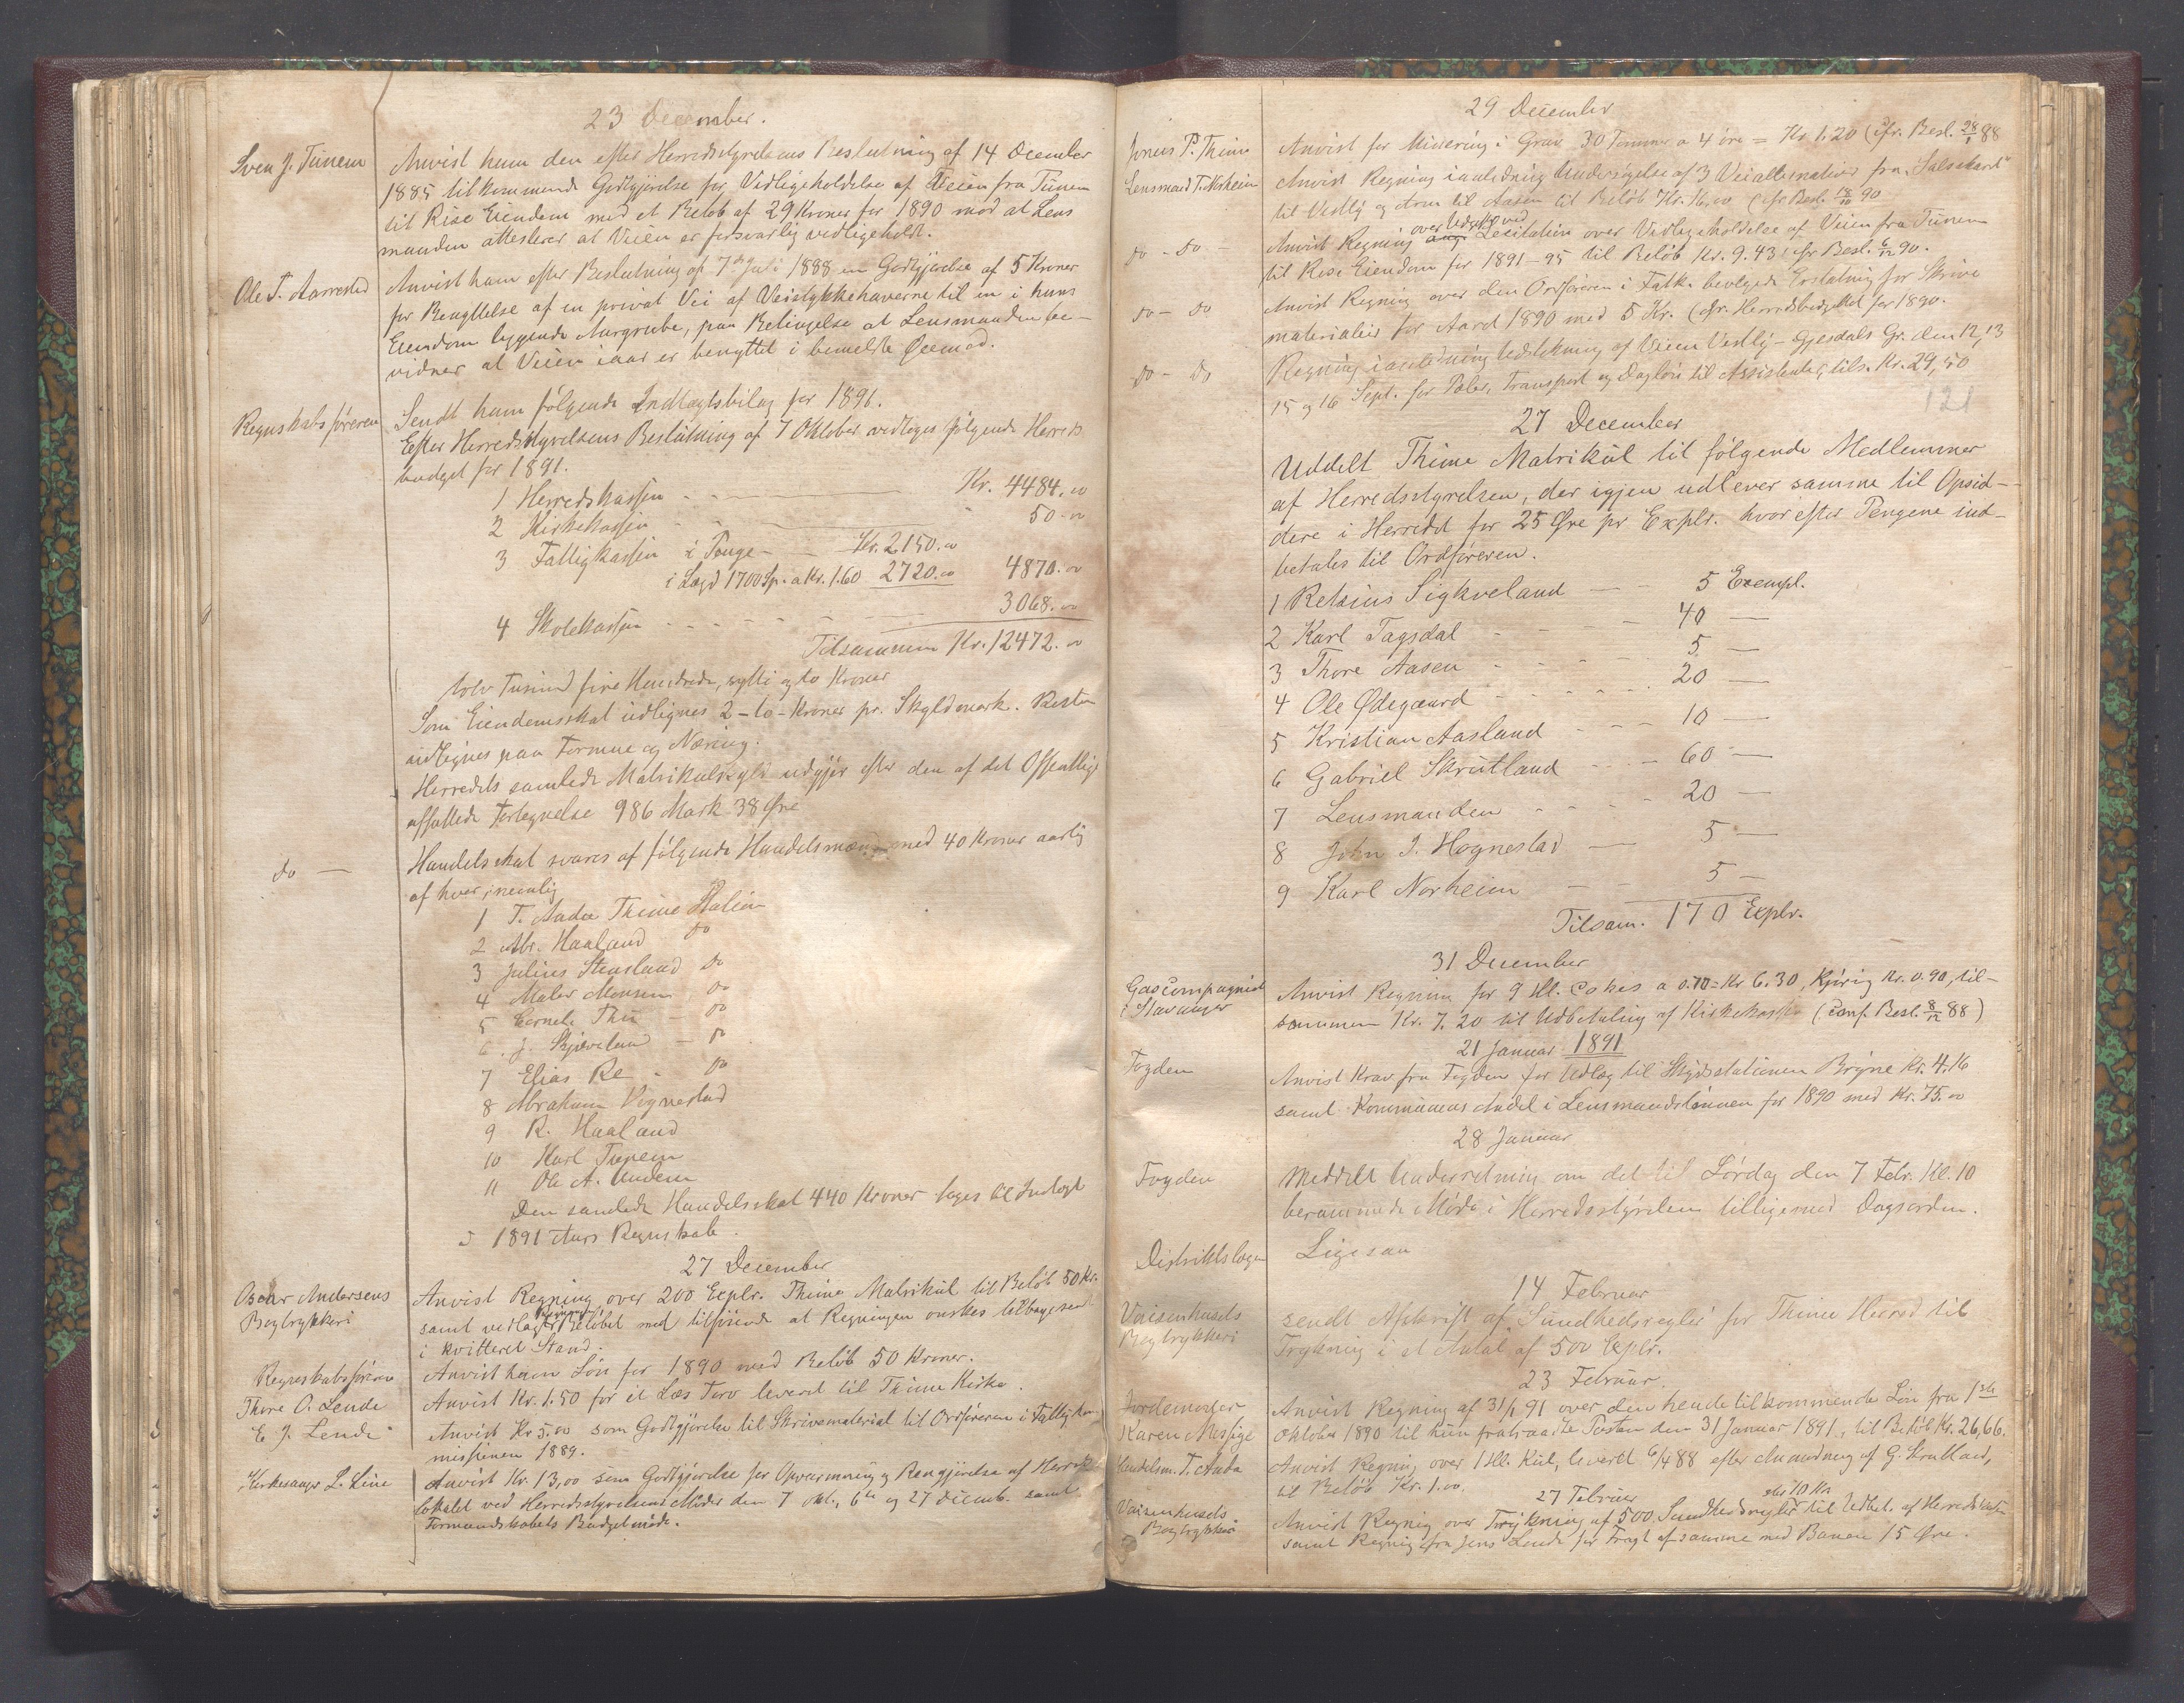 23 December.
Sven J. Tunem
Anvist ham den efter Herredsstyrelsens Beslutning af 14 December
1885 tilkommende Godtgjørelse for Vedligeholdelse af Veien fra Tunem
til Rise Eiendom med et Beløb af 29 Kroner for 1890 mod at Lens
manden attesterer at Veien er forsvarlig vedligeholdt.
Ole T. Aarrestad
Anvist ham efter Beslutning af 7de Juli 1888 en Godtgjørelse af 5 Kroner
for Benyttelse af en privat Vei af Veistykkehaverne til en i hans
Eiendom liggende Aurgrube, paa Betingelse at Lensmanden be-
vidner at Veien iaar er benyttet i bemeldte Øiemed.
Regnskabsføreren
Sendt ham følgende Indtægtsbilag for 1891.
Efter Herredsstyrelsens Beslutning af 7 Oktober vedtoges følgende Herreds
budget for 1891.
1 Herredskassen - - Kr. 4484.00
2 Kirkekassen - - 50.00
3 Fattigkassen i Penge - - Kr. 2150.00
i Lægd 1700 Sp. a Kr. 1.60 2720.00 4870.00
4 Skolekassen - - - - - 3068.00
Tilsammen Kr. 12472.00
tolv Tusind fire Hundrede, sytti og to Kroner
Som Eiendomsskat udlignes 2 - to - Kroner pr. Skyldmark. Resten
udlignes paa Formue og Næring.
Herredets samlede Matrikulskyld udgjør efter den af det Offentlige
affattede Fortegnelse 986 Mark 38 Øre
do —
Handelsskat svares af følgende Handelsmænd med 40 Kroner aarlig
af hver, nemlig
1 T. Anda Thime Station
2 Abr. Haaland do
3 Julius Stensland do
4 Maler Monsen do
5 Cornele Thu - do
6 J. Skjæveland - do
7 Elias Re - do
8 Abraham Vignestad
9 R. Haaland
10 Karl Tunem
11 Ole A. Undem
Den samlede Handelsskat 440 Kroner tages til Indtægt
i 1891 Aars Regnskab.
27 December
Oscar Andersens
Bogtrykkeri
Anvist Regning over 200 Explr. Thime Matrikul til Beløb 50 Kr.
samt vedlagt Beløbet med tilføiende at Regningen ønskes tilbagesendt
i kvitteret Stand.
Regnskabsføreren
Anvist ham Løn for 1890 med Beløb 50 Kroner.
Thore O. Lende
Anvist Kr. 1.50 for et Læs Torv leveret til Thime Kirke.
E. J. Lende
Anvist Kr 5.00 som Godtgjørelse til Skrivemateriel til Ordføreren i Fattigkom
missionen 1889.
Kirkesanger L. Line
Anvist Kr. 13,00 som Godtgjørelse for Opvarmning og Rengjørelse af Herreds
lokalet ved Herredsstyrelsens Møder den 7 Okt., 6te og 27 Decemb. samt
Formandskabets Budgetmøde.
29 December
Jonas P. Thime
Anvist for Minering i Grav 30 Tommer a 4 øre = Kr 1.20 (cfr. Besl. 28/1 88
Lensmand T. Norheim
Anvist Regning ianledning Undersøgelse af 3 Veialternativer fra "Salteskard"
til Vestly og frem til Aasen til Beløb Kr. 16.00 (cfr Besl. 18/10 90
do - do -
over Udgifter ved
Anvist Regning Licitation over Vedligeholdelse af Veien fra Tunem
til Rise Eiendom for 1891-95 til Beløb Kr. 9.43 (cfr Besl. 6/12 90.
do - do
Anvist Regning over den Ordføreren i Fattk. bevilgede Erstatning for Skrive
materialier for Aaret 1890 med 5 Kr. (cfr. Herredsbudgettet for 1890.
do - do
Regning ianledning Udstikning af Veien Vestly - Gjesdals Gr. den 12, 13
15 og 16 Sept. for Pæler, Transport og Dagløn til Assistenter, tils. Kr. 29,50
121
27 December
Uddelt Thime Matrikul til følgende Medlemmer
af Herredsstyrelsen, der igjen udlever samme til Opsid-
dere i Herredet for 25 Øre pr Explr. hvorefter Pengene ind-
betales til Ordføreren.
1 Retsius Sigkveland — - 5 Exempl.
2 Karl Tagsdal - - - - 40 —
3 Thore Aasen - - - - 5 —
4 Ole Ødegaard - - - - 20 —
5 Kristian Aasland - - - 10 —
6 Gabriel Skrutland - - - 60 —
7 Lensmanden - - - - 20 —
8 John J. Hognestad — 5 —
9 Karl Norheim - - - 5 —
Tilsam. 170 Explr.
31 December
Gascompagniet
i Stavanger
Anvist Regning for 9 Hl. Cokes a 0.70 = Kr 6.30, Kjørig Kr. 0.90, til-
sammen Kr. 7.20 til Udbetaling af Kirkekassen (conf. Besl. 8/12 88)
21 Januar 1891
Fogden
Anvist Krav fra Fogden for Udlæg til Skydsstationen Bryne Kr. 4.16
samt Kommunens Andel i Lensmandslønnen for 1890 med Kr. 75.00
28 Januar
Fogden
Meddelt Underretning om det til Lørdag den 7 Febr. Kl. 10
berammede Møde i Herredsstyrelsen tilligemed Dagsorden.
Distriktslægen
Ligesaa
14 Februar
Vaisenhusets
Bogtrykkeri
sendt Afskrift af Sundhedsregler for Thime Herred til
Trykning i et Antal af 500 Explr.
23 Februar.
Jordemoder
Karen Messige
Anvist Regning af 31/1 91 over den hende tilkommende Løn fra 1ste
Oktober 1890 til hun fratraadte Posten den 31 Januar 1891, til Beløb Kr. 26,66.
Handelsm. T. Anda
Anvist Regning over 1 Hl. Kul, leveret 6/4 88 efter Anmodning af G. Skrutland,
til Beløb Kr. 1.00.
27 Februar
Vaisenhusets
Bogtrykkeri
stor 10 Kr
Anvist Regnig over Trykning af 500 Sundhedsregler til Udbet. af Herredskassen
samt Regnig fra Jens Lende for Fragt af samme med Banen 15 Øre.